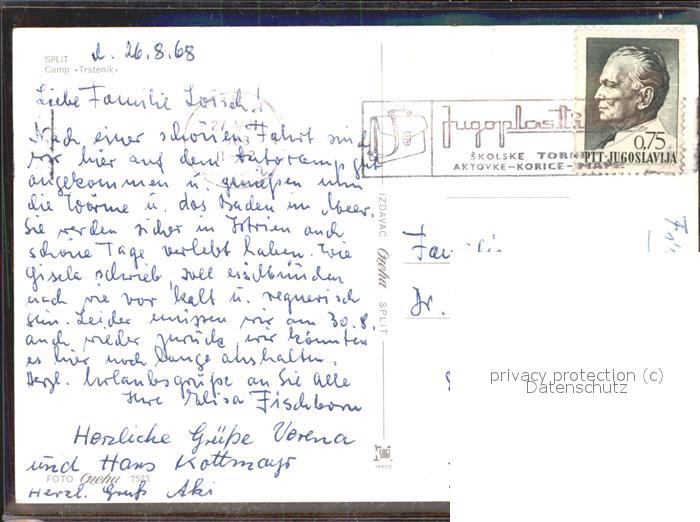 SPLIT
Camp »Trstenik«
d. 26.8.68
Liebe Familie Loisch!
Nach einer schönen Fahrt sind
wir hier auf dem Autocamp gut
angekommen u. genießen nun
die Wärme u. das Baden im Meer.
Sie werden sicher in Istrien auch
schöne Tage verlebt haben. Wie
Gisela schrieb, soll es
nach wie vor kalt u. regnerisch
sein. Leider müssen wir am 30.8.
auch wieder zurück, wir könnten
es hier noch lange aushalten.
Herzl. Urlaubsgrüße an Sie alle
Ihre Elisa Fischborn
Herzliche Grüße Verena
und Hans Kottmayr
FOTO 7523
Herzl. Gruß Aki
Jugoplasti
ŠKOLSKE TOR
AKTOVKE-KORICE-MAPE
0,75
PTT-JUGOSLAVIJA
IZDAVAČ SPLIT
Familie
Dr.
privacy protection (c)
Datenschutz